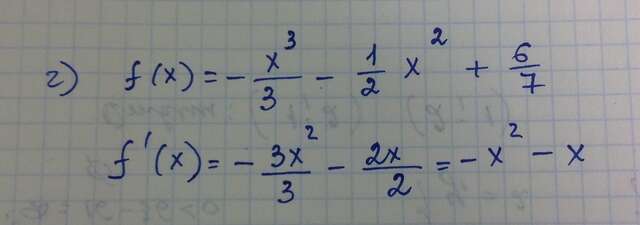 г) f(x) = - x³/3 - 1/2 x² + 6/7
f'(x) = - 3x²/3 - 2x/2 = -x² - x